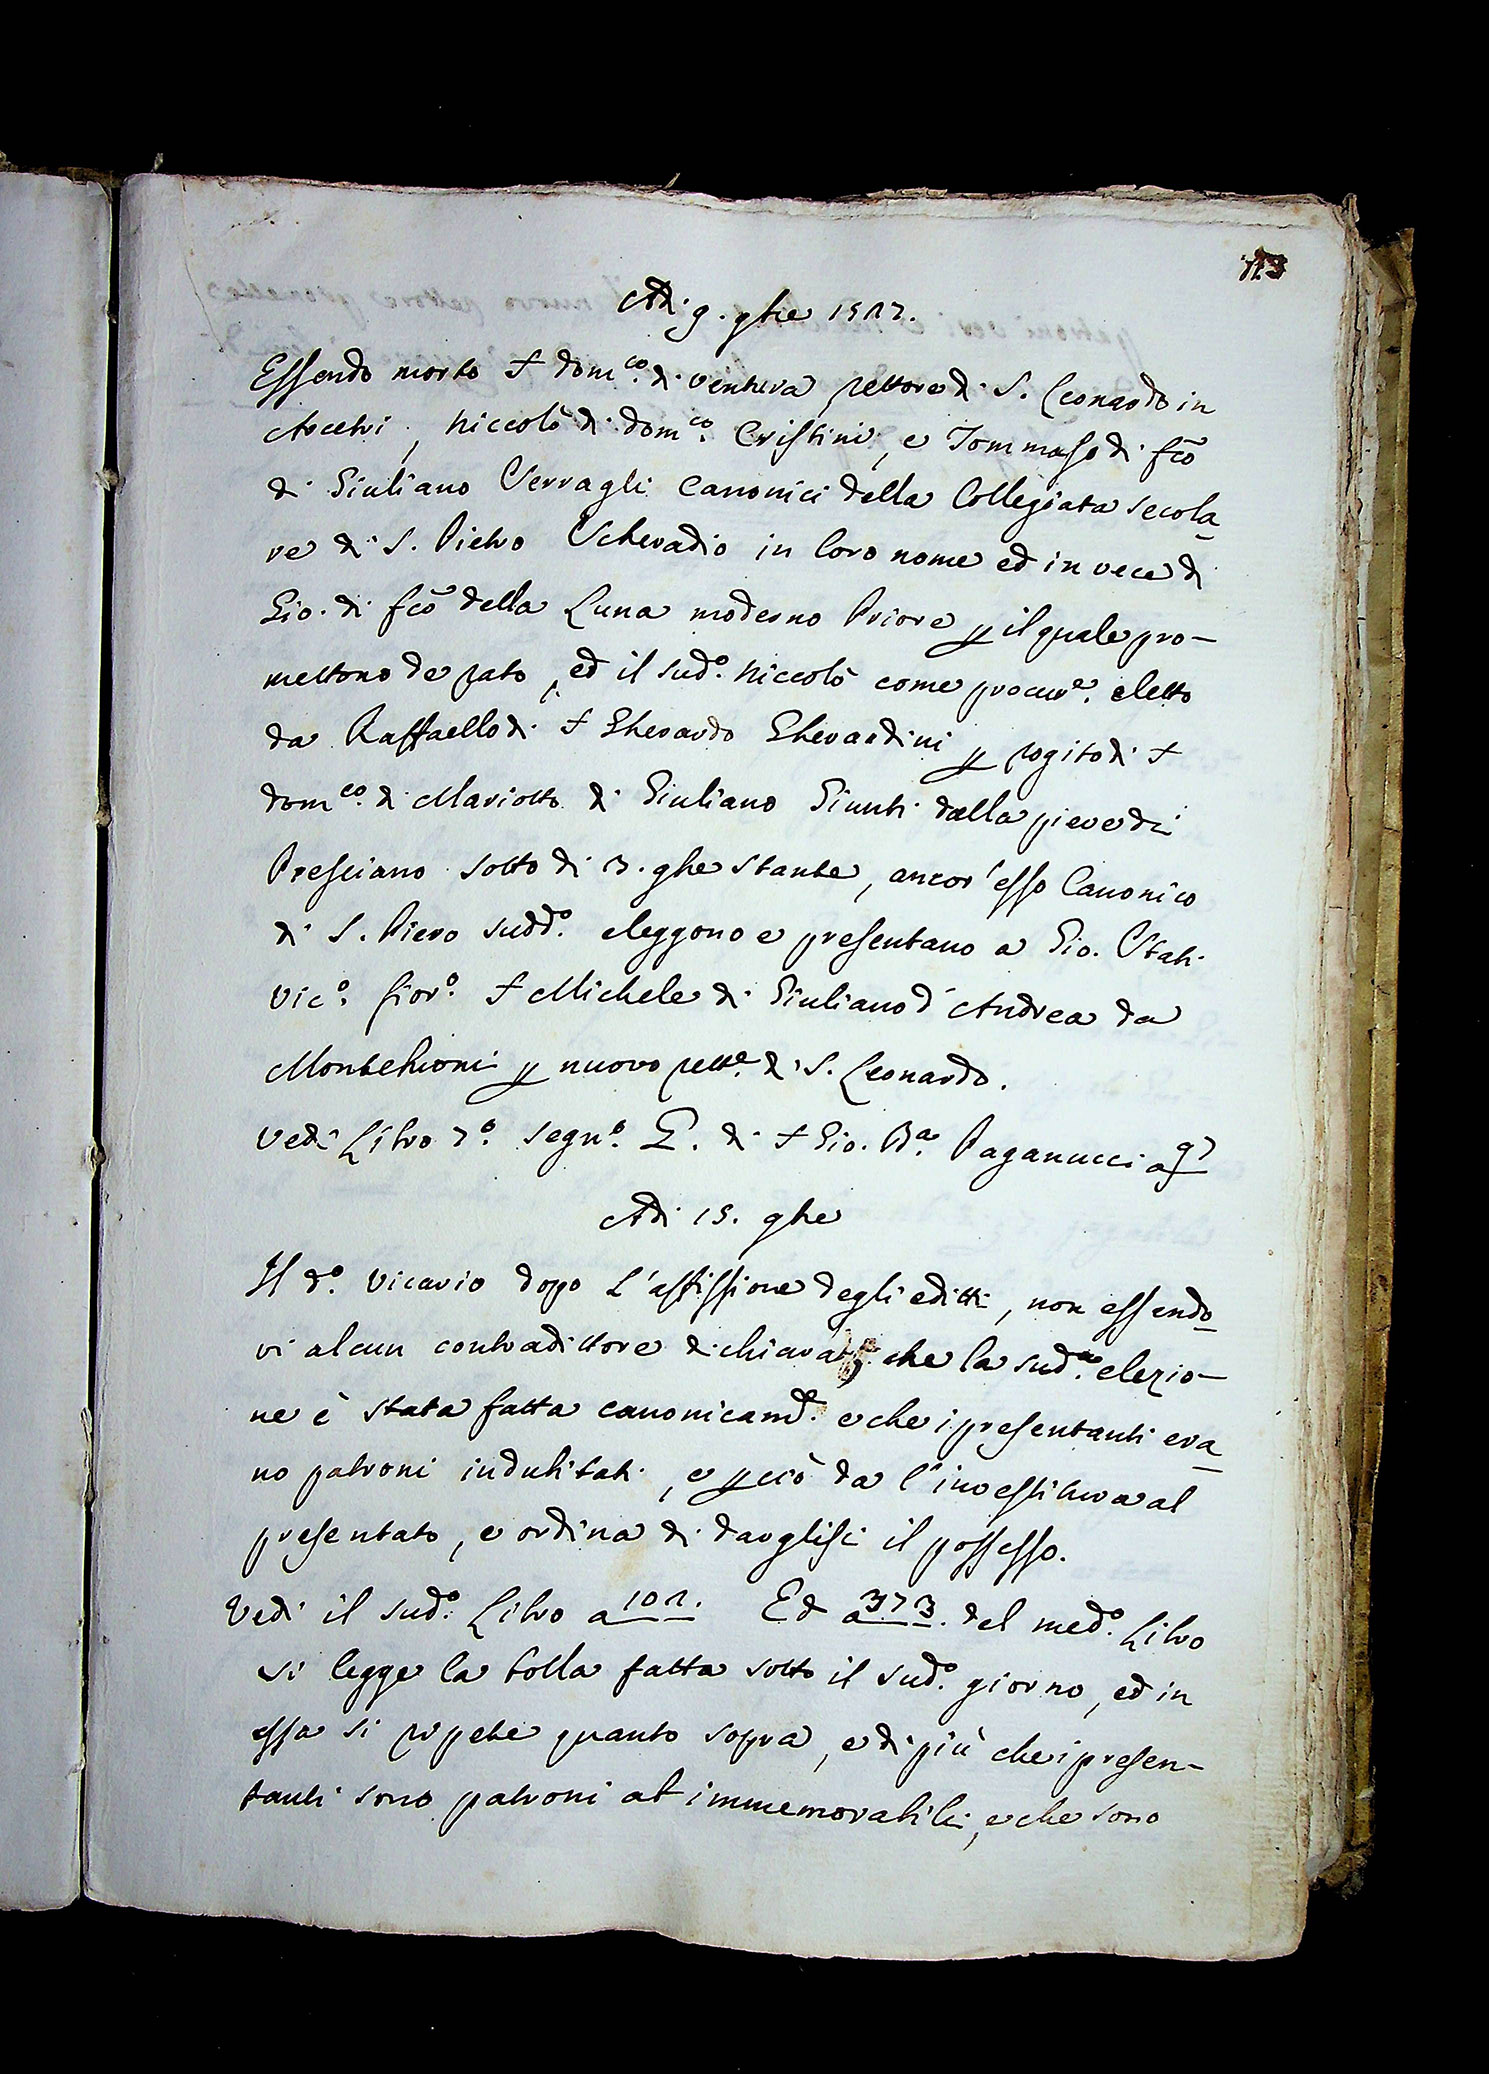 113
Adì 9. 9bre 1527.
Essendo morto S. Dom.co di Ventura rettore di S. Leonardo in
Arcetri, Niccolò di Dom.co Cristini, e Tommaso di Fco
di Giuliano Verragli Canonici della Collegiata secola_
re di S. Pietro Scheradio in loro nome ed in vece di
Gio. di Fco della Luna moderno Priore p il quale pro-
mettono de rato, ed il sud.o Niccolò come procur.e eletto
da Raffaello di S Gherardo Gherardini p rogito di S
Dom.co di Mariotto di Giuliano Giunti dalla pieve di
Presciano sotto dì 3. 9bre stante, ancor'esso Canonico
di S. Piero sudd.o eleggono e presentano a Gio. Stati
Vic.o fior.o S Michele di Giuliano d'Andrea da
Montehioni p nuovo rett.e di S. Leonardo.
Vedi Libro 7.o segn.o E. di S Gio. Ba. Paganucci a 97
Adì 15. 9bre
Il d.o Vicario dopo l'affissione degli editti, non essendo_
vi alcun contradittore dichiara, che la sud.a elezio-
ne è stata fatta canonicam.e e che i presentanti era_
no patroni indubitati, e pciò da l'investitura al
presentato, e ordina di darglisi il possesso.
Vedi il sud.o Libro a 102. Ed a 373. del med.o Libro
si legge la bolla fatta sotto il sud.o giorno, ed in
essa si repete quanto sopra, e di più che i presen-
tanti sono patroni ab immemorabili, e che sono